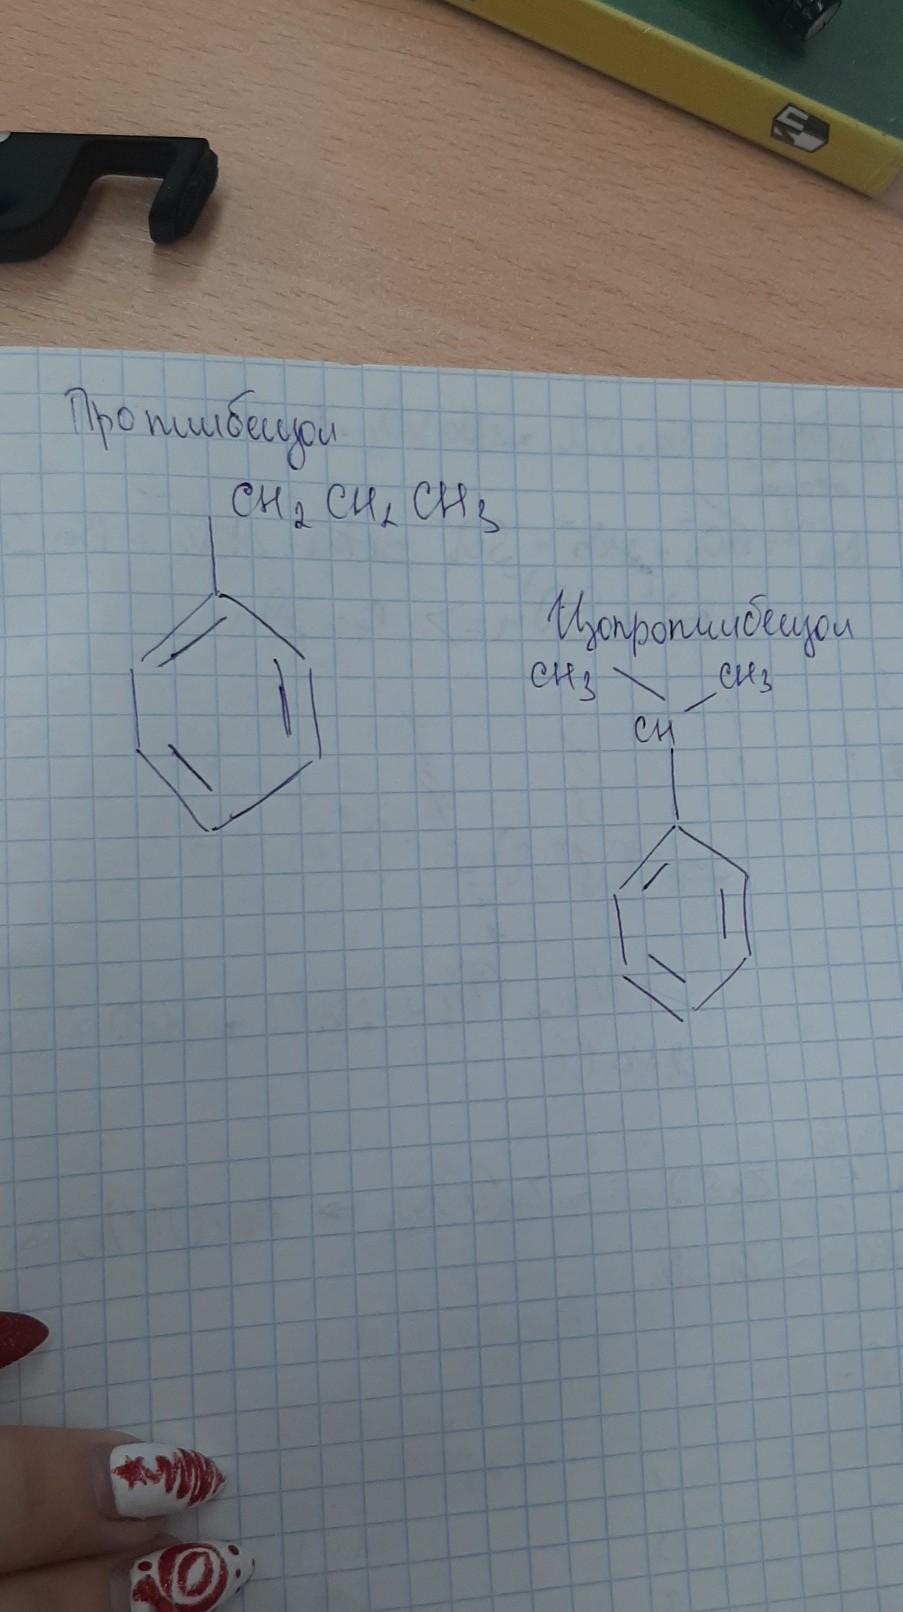 Пропилбензол
CH2 CH2 CH3
Изопропилбензол
CH3 CH3
CH